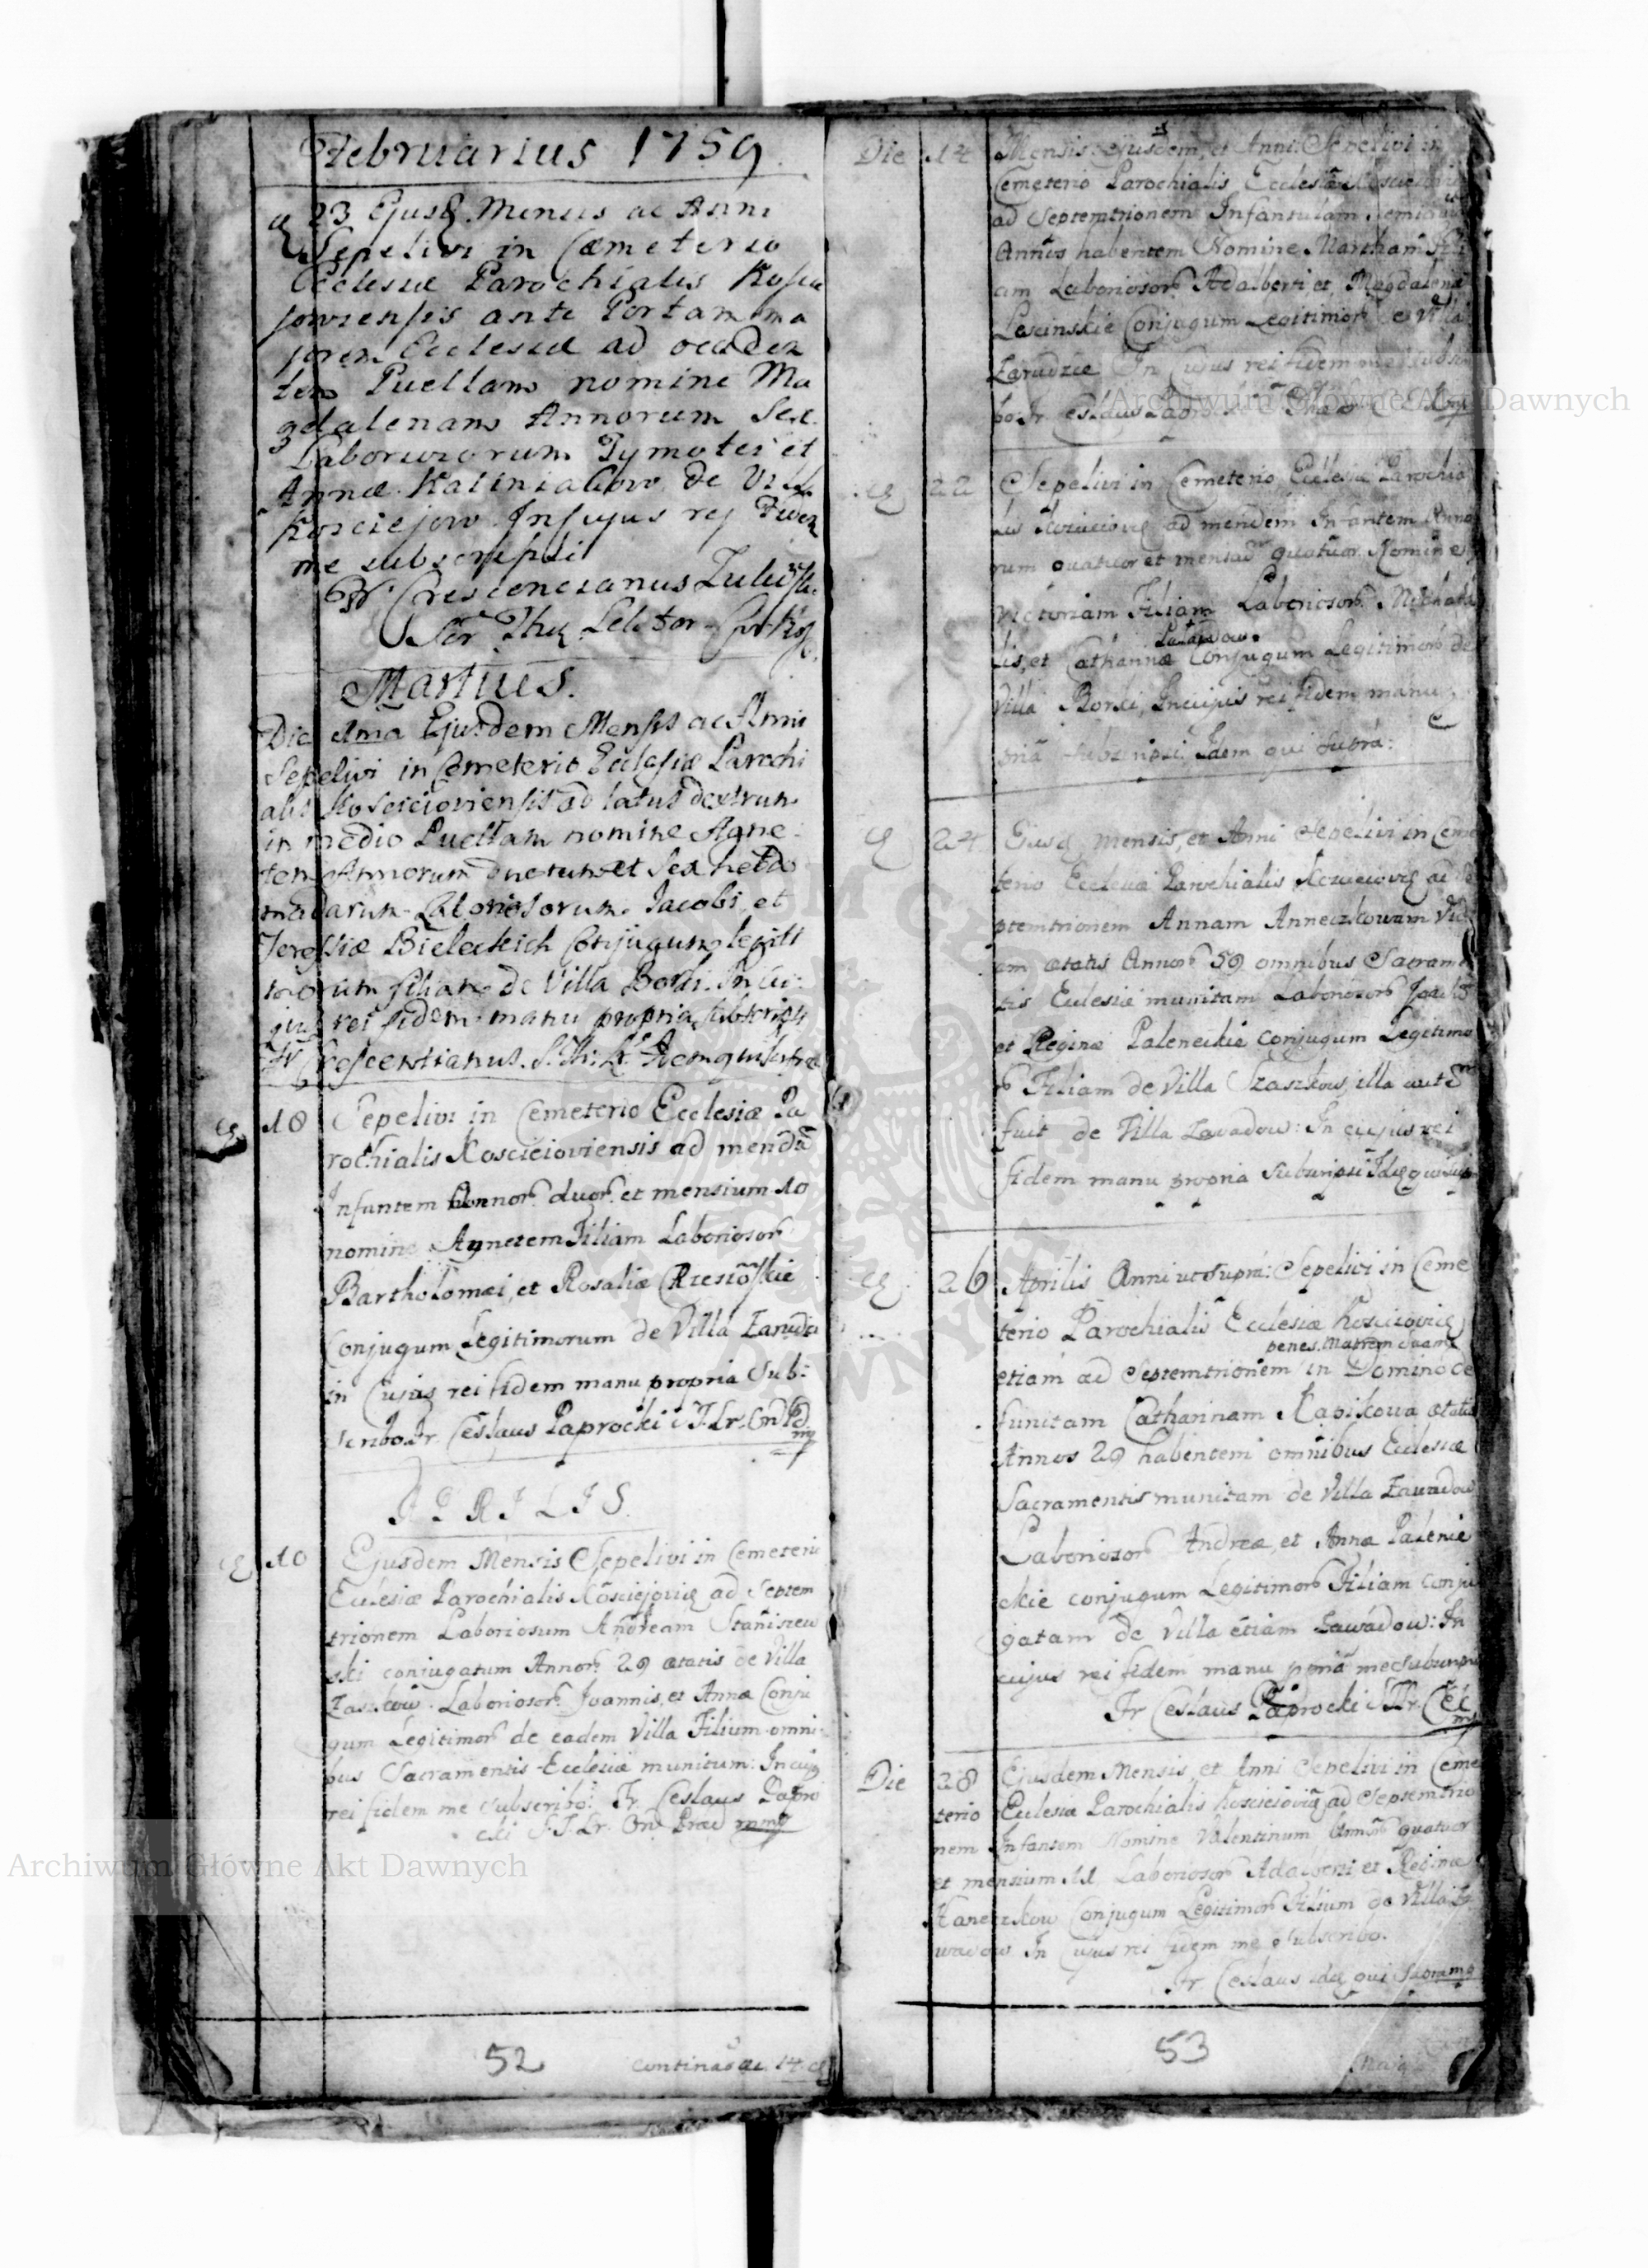 Februarius 1759.
23 Ejusd. Mensis ac Anni
Sepelivi in Cæmeterio
Ecclesiæ Parochialis Koscie
joviensis ante Portam ma
jorem Ecclesiæ ad occiden
tem Puellam nomine Ma
gdalenam Annorum Sex.
Laboriosorum Tymotei et
Annæ Kaliniakow de Villa
Kosciejow. In cujus rej Fidem
me subscripsi
Fr. Crescencianus
Martius.
Die Ima Ejusdem Mensis ac Anni
Sepelivi in Cemeterio Ecclesiæ Parochi
alis Koscieioviensis ad latus dextrum
in medio Puellam nomine Agne
tem Annorum duorum et Sex hebdo
madarum Laboriosorum Jacobi et
Teressiæ Bieleckich Conjugum legiti
morum filiam de Villa Borki. In cu:
jus rei fidem manu propria subscripsi
Fr. Crescentianus. S. Th: Lr.
18 Sepelivi in Cemeterio Ecclesiæ Pa
rochialis Koscieioviensis ad merid.
Infantem Annor. duor. et mensium 10
nomine Agnetem Filiam Laboriosor.
Bartholomæi, et Rosaliæ
Conjugum Legitimorum de Villa Zarudz
in Cujus rei fidem manu propria Sub:
scribo. Fr. Ceslaus Paprocki S. T. Lr. Ord Pd. mp
APRILIS.
10 Ejusdem Mensis Sepelivi in Cemeterio
Ecclesiæ Parochialis Kosciejovie ad Septem
trionem Laboriosum Andream Staniszew
ski conjugatum Annor. 29 ætatis de Villa
Zaszkow. Laboriosor. Joannis, et Annæ Conju
gum Legitimor. de eadem Villa Filium omni
bus Sacramentis Ecclesiæ munitum: In cujus
rei fidem me Subscribo: Fr. Ceslaus Papro
cki S. T. Lr. Ord. Præd mmp
52
Die 14 Mensis ejusdem, et Anni: Sepelivi in
Cemeterio Parochialis Ecclesiæ
ad Septemtrionem Infantulam
Annos habentem Nomine Martham Fili
am Laboriosor. Adalberti et Magdalenæ
Lescinskie Conjugum Legitimor. e Villa
Zarudzie In Cujus rei fidem me Subscri
bo. Fr. Ceslaus
22 Sepelivi in Cemeterio Ecclesiæ Parochia
lis ad meridem Infantem Anno
rum quatuor et mensium quatuor. Nomine
Victoriam Filiam Laboriosor. Michaë
lis, et Catharinæ Conjugum Legitimor. de
Villa Borki, In cujus rei fidem manu
pria Subscripsi Idem qui Supra:
24 Ejusd. mensis, et Anni Sepelivi in Ceme
terio Ecclesiæ Parochialis ad Se
ptemtrionem Annam Anneczkowam Vidu
am ætatis Annor. 59 omnibus Sacramen
tis Ecclesiæ munitam Laboriosor.
et Reginæ Paleneckie Conjugum Legitimo
r. Filiam de Villa Szaszkow, illa autem
fuit de Villa Zavadow: In cujus rei
fidem manu propria Subscripsi Idem qui supra
26 Aprilis Anni ut Supra: Sepelivi in Ceme
terio Parochialis Ecclesiæ Koscieiovie
penes Matrem Suam
etiam ad Septemtrionem in Domino de
functam Catharinam Kapikowa ætatis
Annos 29 habentem omnibus Ecclesiæ
Sacramentis munitam de Villa Zawadow
Laboriosor. Andreæ, et Annæ Palenie
ckie conjugum Legitimor. Filiam conju
gatam de Villa etiam Zawadow: In
cujus rei fidem manu pria me Subscripsi
Fr Ceslaus Paprocki
Die 28 Ejusdem Mensis, et Anni Sepelivi in Ceme
terio Ecclesiæ Parochialis Koscieiovie ad Septemtrio
nem Infantem Nomine Valentinum Annor. quatuor
et mensium 11 Laboriosor. Adalberti et Reginæ
Haneczkow Conjugum Legitimor. Filium de Villa Za
wadow In Cujus rei fidem me Subscribo.
Fr Ceslaus idem qui Supra mp
53
Archiwum Główne Akt Dawnych
Archiwum Główne Akt Dawnych